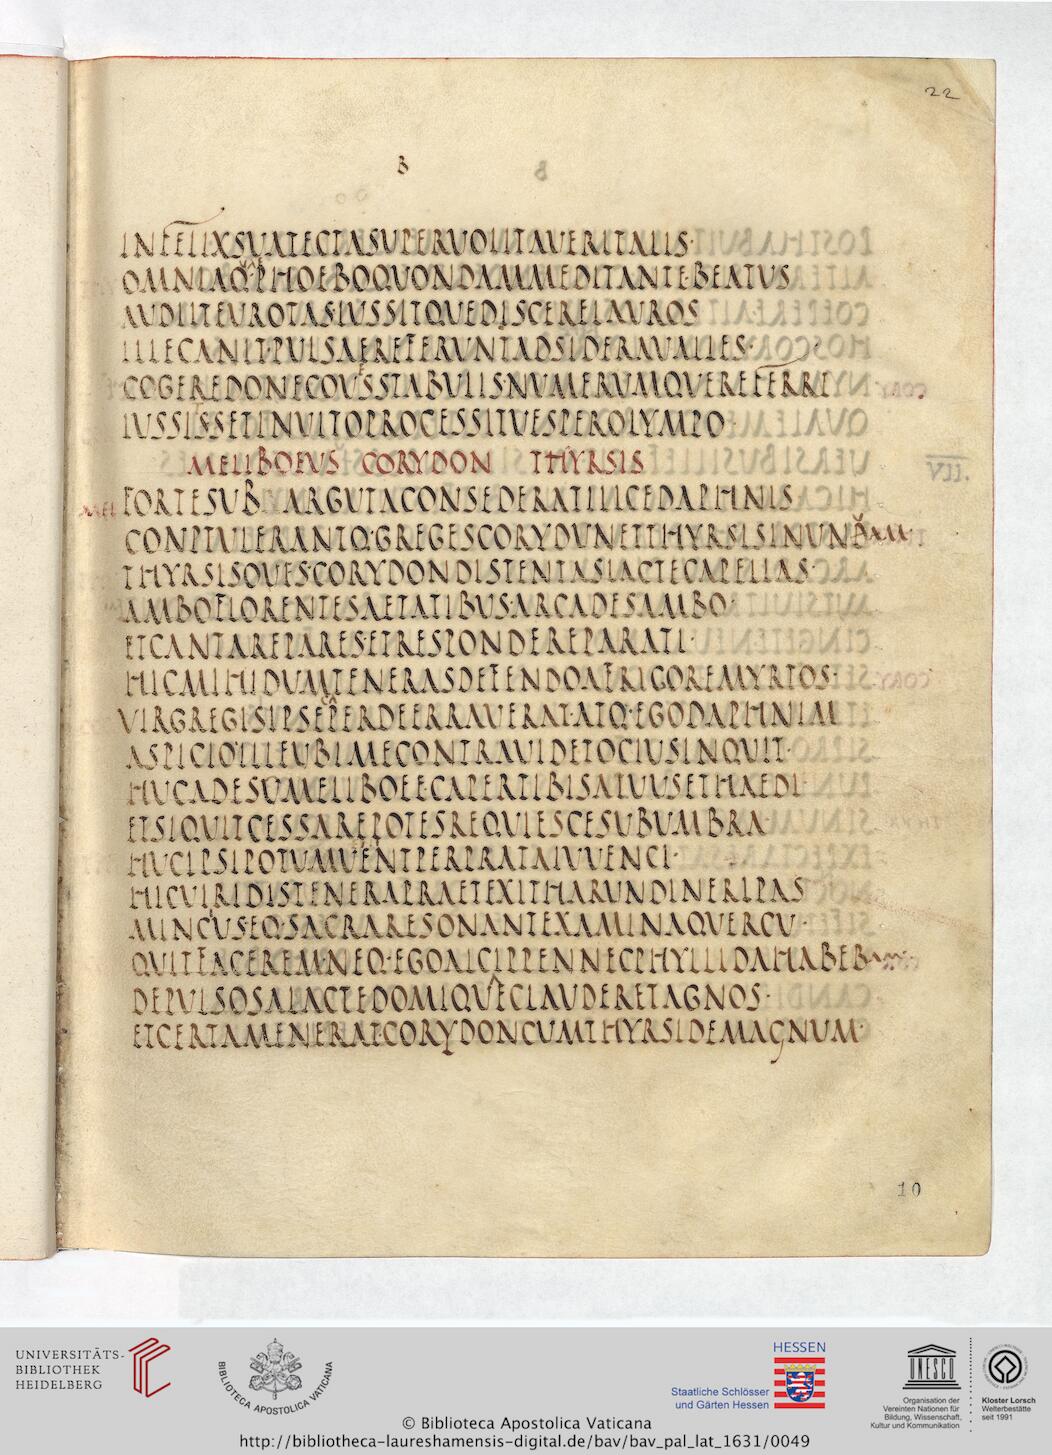 22
B
INFELIXSUATECTASUPERVOLITAVERITALIS·
OMNIAQ·PHOEBOQUONDAMMEDITANTEBEATUS
AUDIITEUROTAS·IUSSITQUEDISCERELAUROS
ILLECANIT·PULSAEREFERUNTADSIDERAVALLES·
COGEREDONECOVISSTABULIS·NUMERUMQUEREFERRI
IUSSISSETINVITOPROCESSITVESPEROLYMPO·
MELIBOEUS CORYDON THYRSIS
VII.
MEL FORTESUB ARGUTACONSEDERATILICEDAPHNIS
CONPULERANTQ·GREGESCORYDUNETTHYRSISINUNUM·
THYRSISOVES·CORYDONDISTENTASLACTECAPELLAS·
AMBOFLORENTESAETATIBUS·ARCADESAMBO·
ETCANTAREPARES·ETRESPONDEREPARATI·
HICMIHIDUMTENERASDEFENDOAFRIGOREMYRTOS·
VIRGREGISIPSEPERDEERRAVERAT·ATQ·EGODAPHNIM
ASPICIO·ILLEUBIMECONTRAVIDETOCIUSINQUIT·
HUCADESOMELIBOEECAPERTIBISALVUSETHAEDI·
ETSIQUITCESSAREPOTESREQUIESCESUBUMBRA·
HUCIPSIPOTUMVENIENTPERPRATAIUVENCI·
HICVIRIDISTENERAPRAETEXITHARUNDINERIPAS
MINCIUSEQ·SACRARESONANTEXAMINAQUERCU·
QUITFACEREM·NEQ·EGOALCIPPENNECPHYLLIDAHABEBAM·
DEPULSOSALACTEDOMIQUAECLAUDERETAGNOS·
ETCERTAMENERAT·CORYDONCUMTHYRSIDEMAGNUM·
10
UNIVERSITÄTS-
BIBLIOTHEK
HEIDELBERG
BIBLIOTECA APOSTOLICA VATICANA
HESSEN
Staatliche Schlösser
und Gärten Hessen
UNESCO
Organisation der
Vereinten Nationen für
Bildung, Wissenschaft,
Kultur und Kommunikation
Kloster Lorsch
Welterbestätte
seit 1991
© Biblioteca Apostolica Vaticana
http://bibliotheca-laureshamensis-digital.de/bav/bav_pal_lat_1631/0049